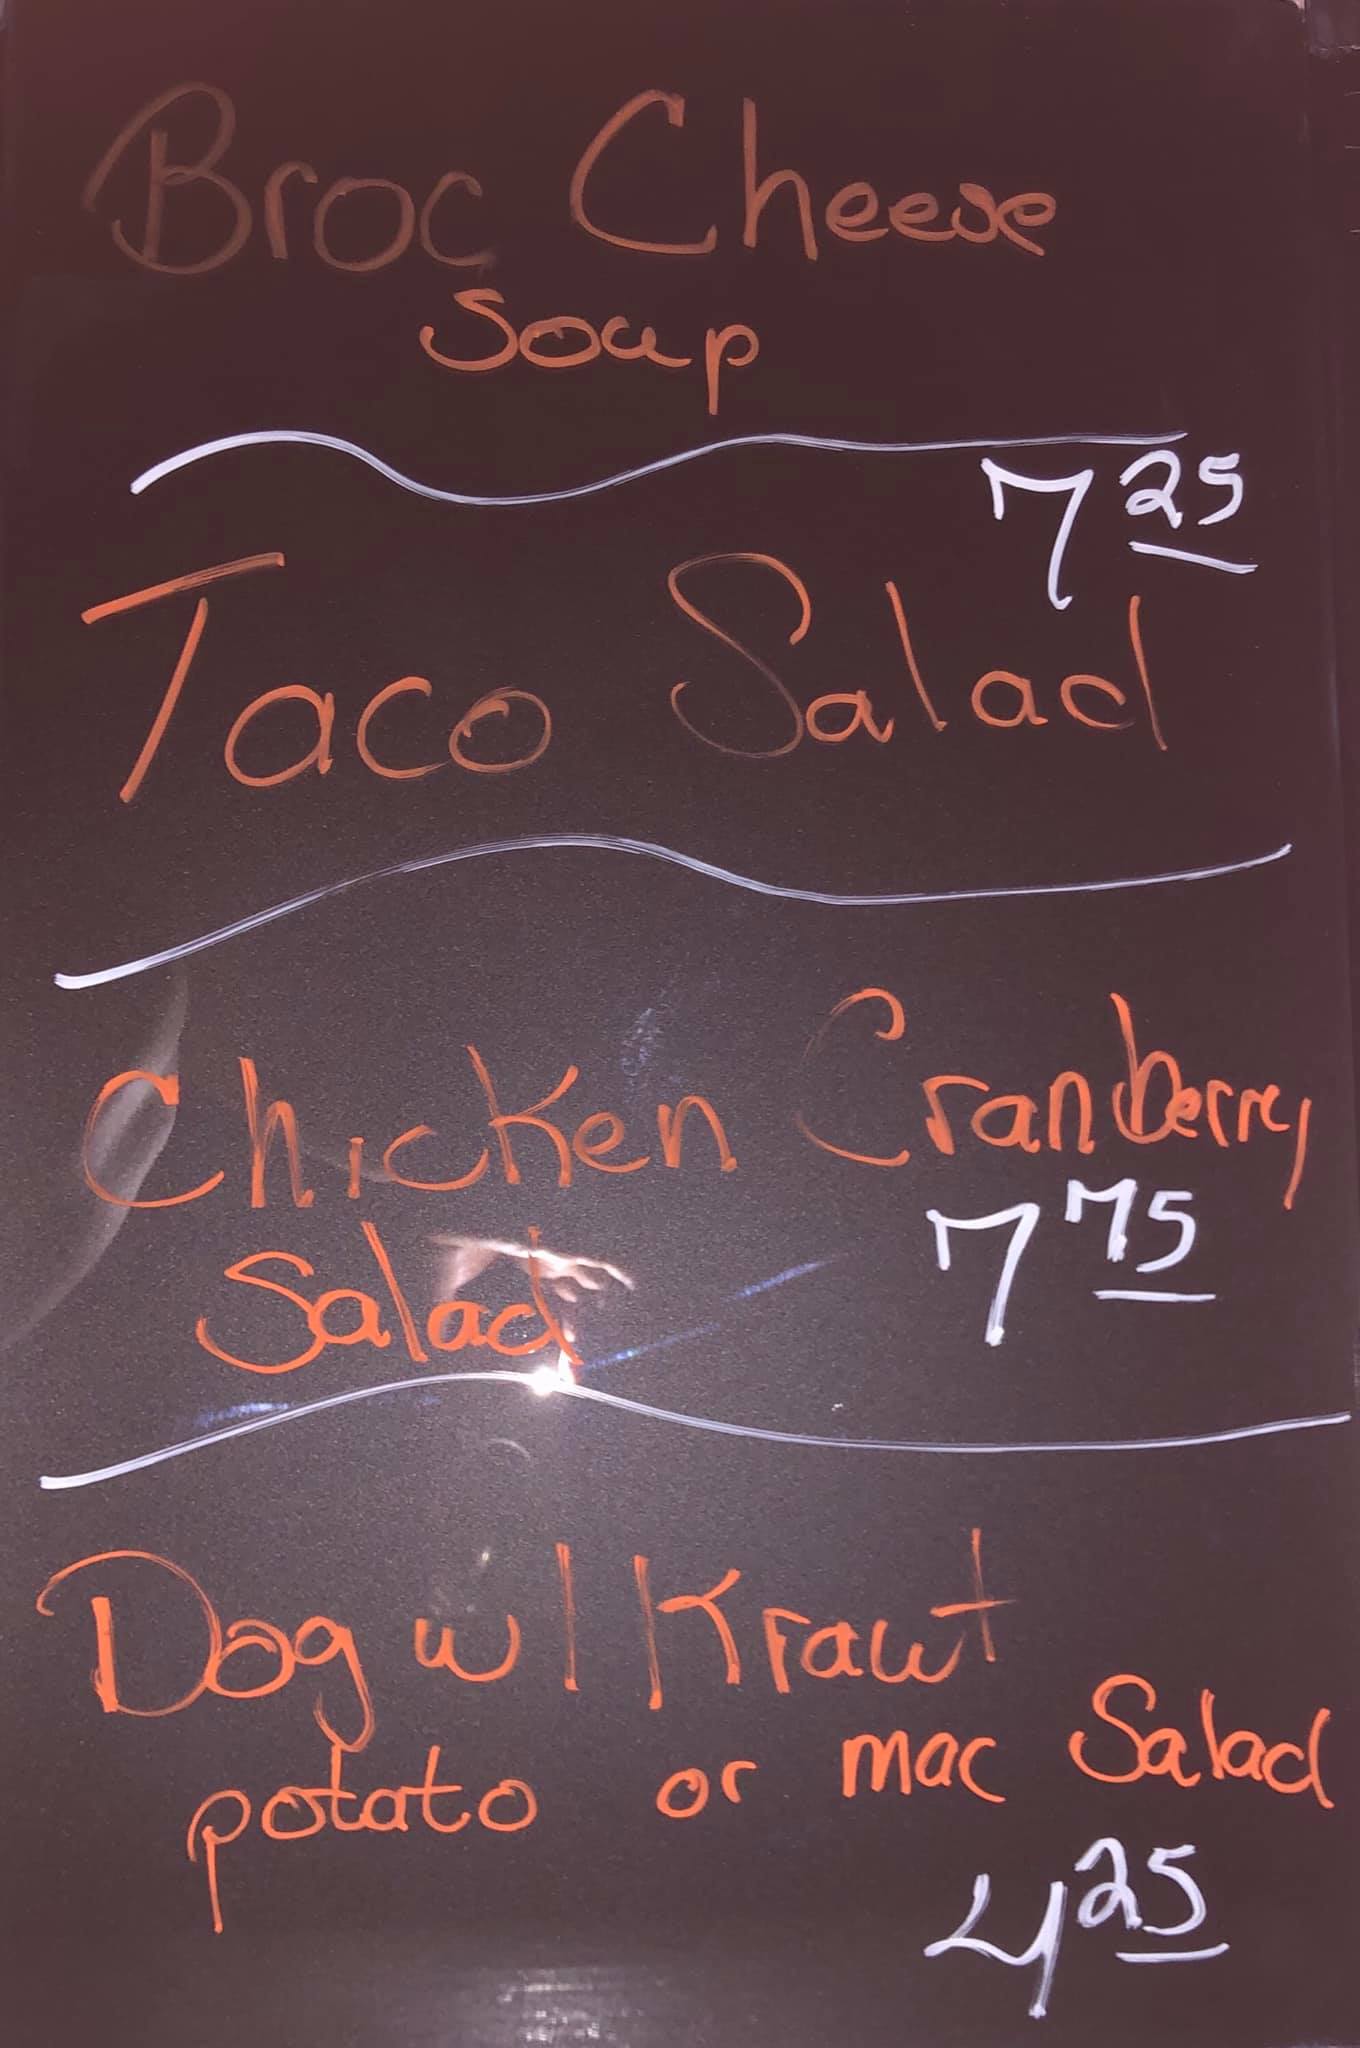 Broc Cheese
Soup
7 25
Taco Salad
Chicken Cranberry
7 75
Salad
Dog w/ Kraut
potato or mac Salad
4 25